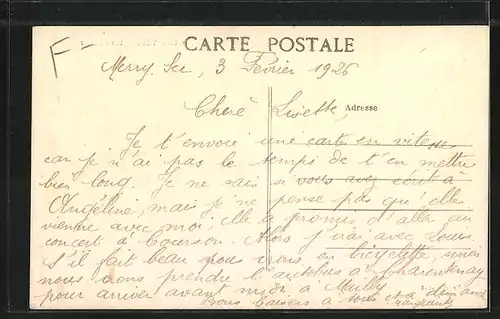 F-
CARTE POSTALE
Merry Sec, 3 Février 1926
Cherè Lisette,
Adresse
Je t'envoie une carte en vitesse
car je n'ai pas le temps de t'en mettre
bien long. Je ne sais si vous avez écrit à
Angéline, mais je ne pense pas qu'elle
vienne avec moi, elle a promis d'aller au
concert d'Courson. Alors j'irai avec Louis.
S'il fait beau nous irons en bicyclette, sinon
nous irons prendre l'autobus à Charentenay
pour arriver avant midi à Mailly
Bons baisers à tous et à dimanche
Marguerite